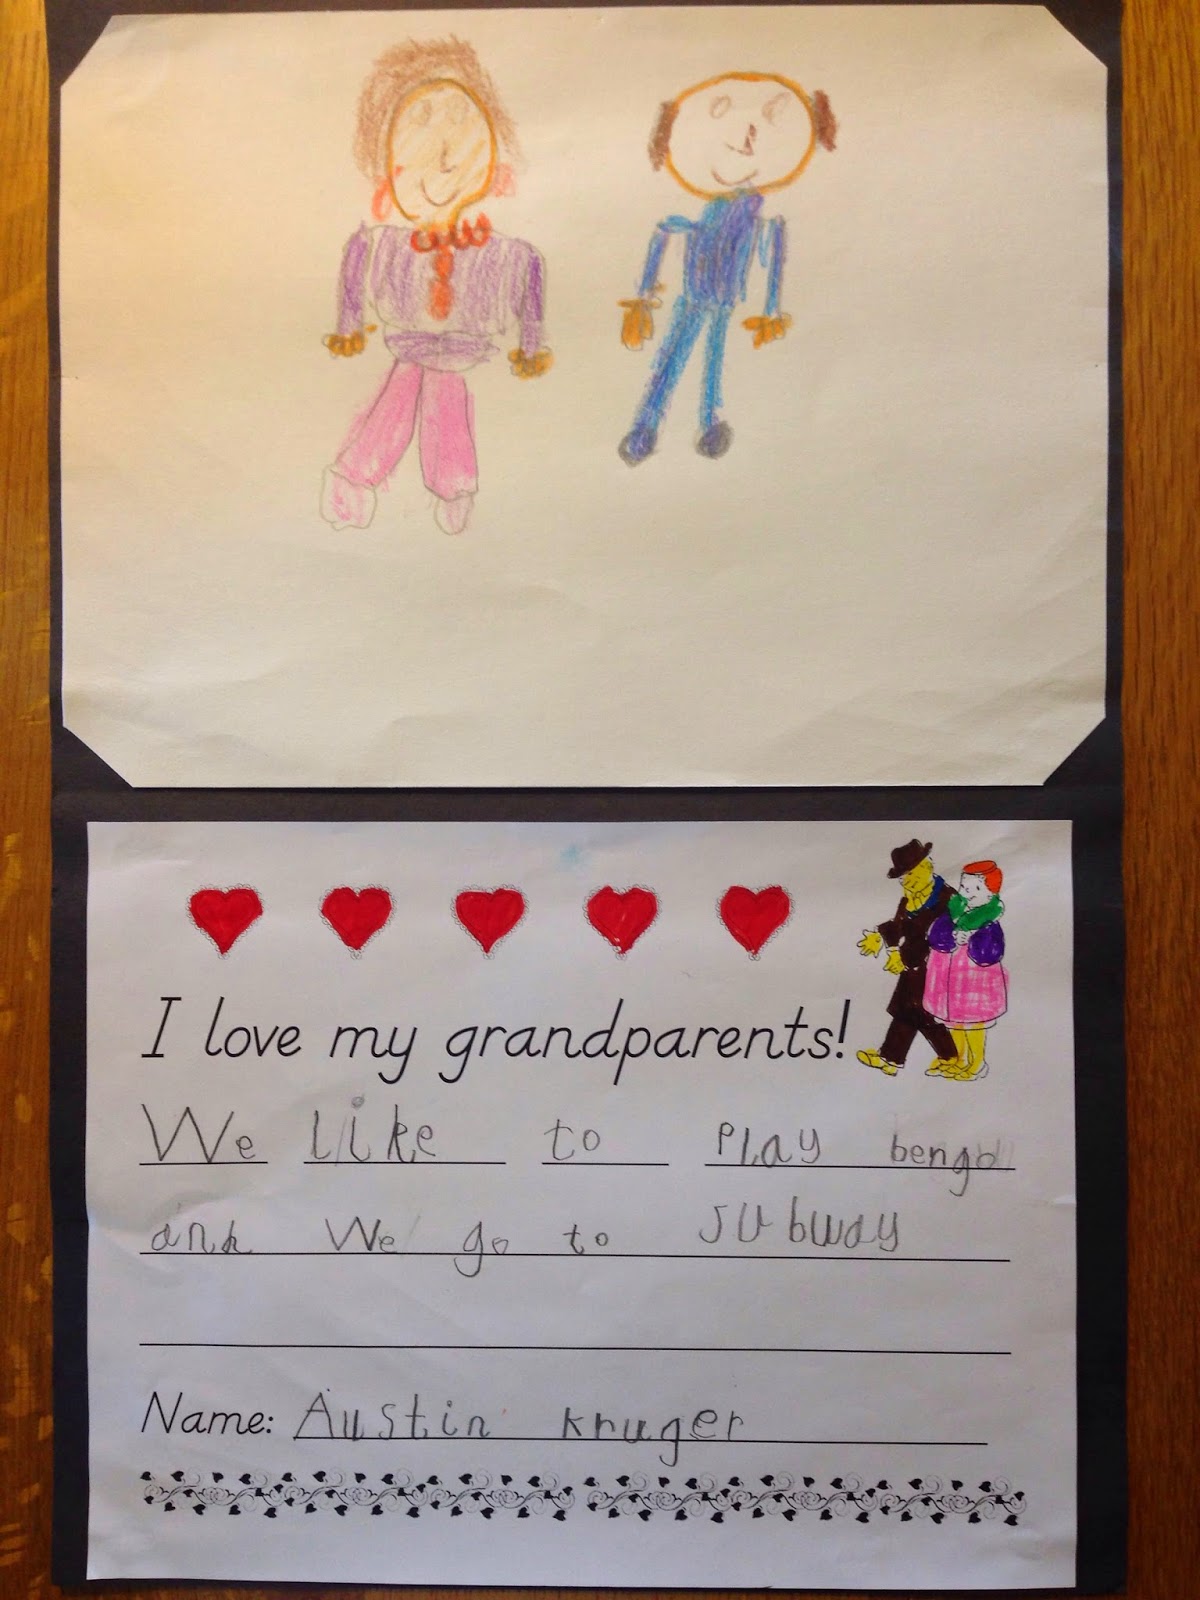 I love my grandparents!
We like to Play bengo
ank We go to subway
Name: Austin kruger